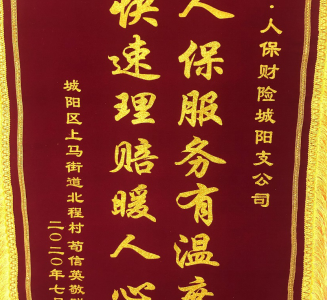 ·人保财险城阳支公司
人保服务有温度
快速理赔暖人心
城阳区上马街道北程村 苟信英敬
二〇二〇年七月